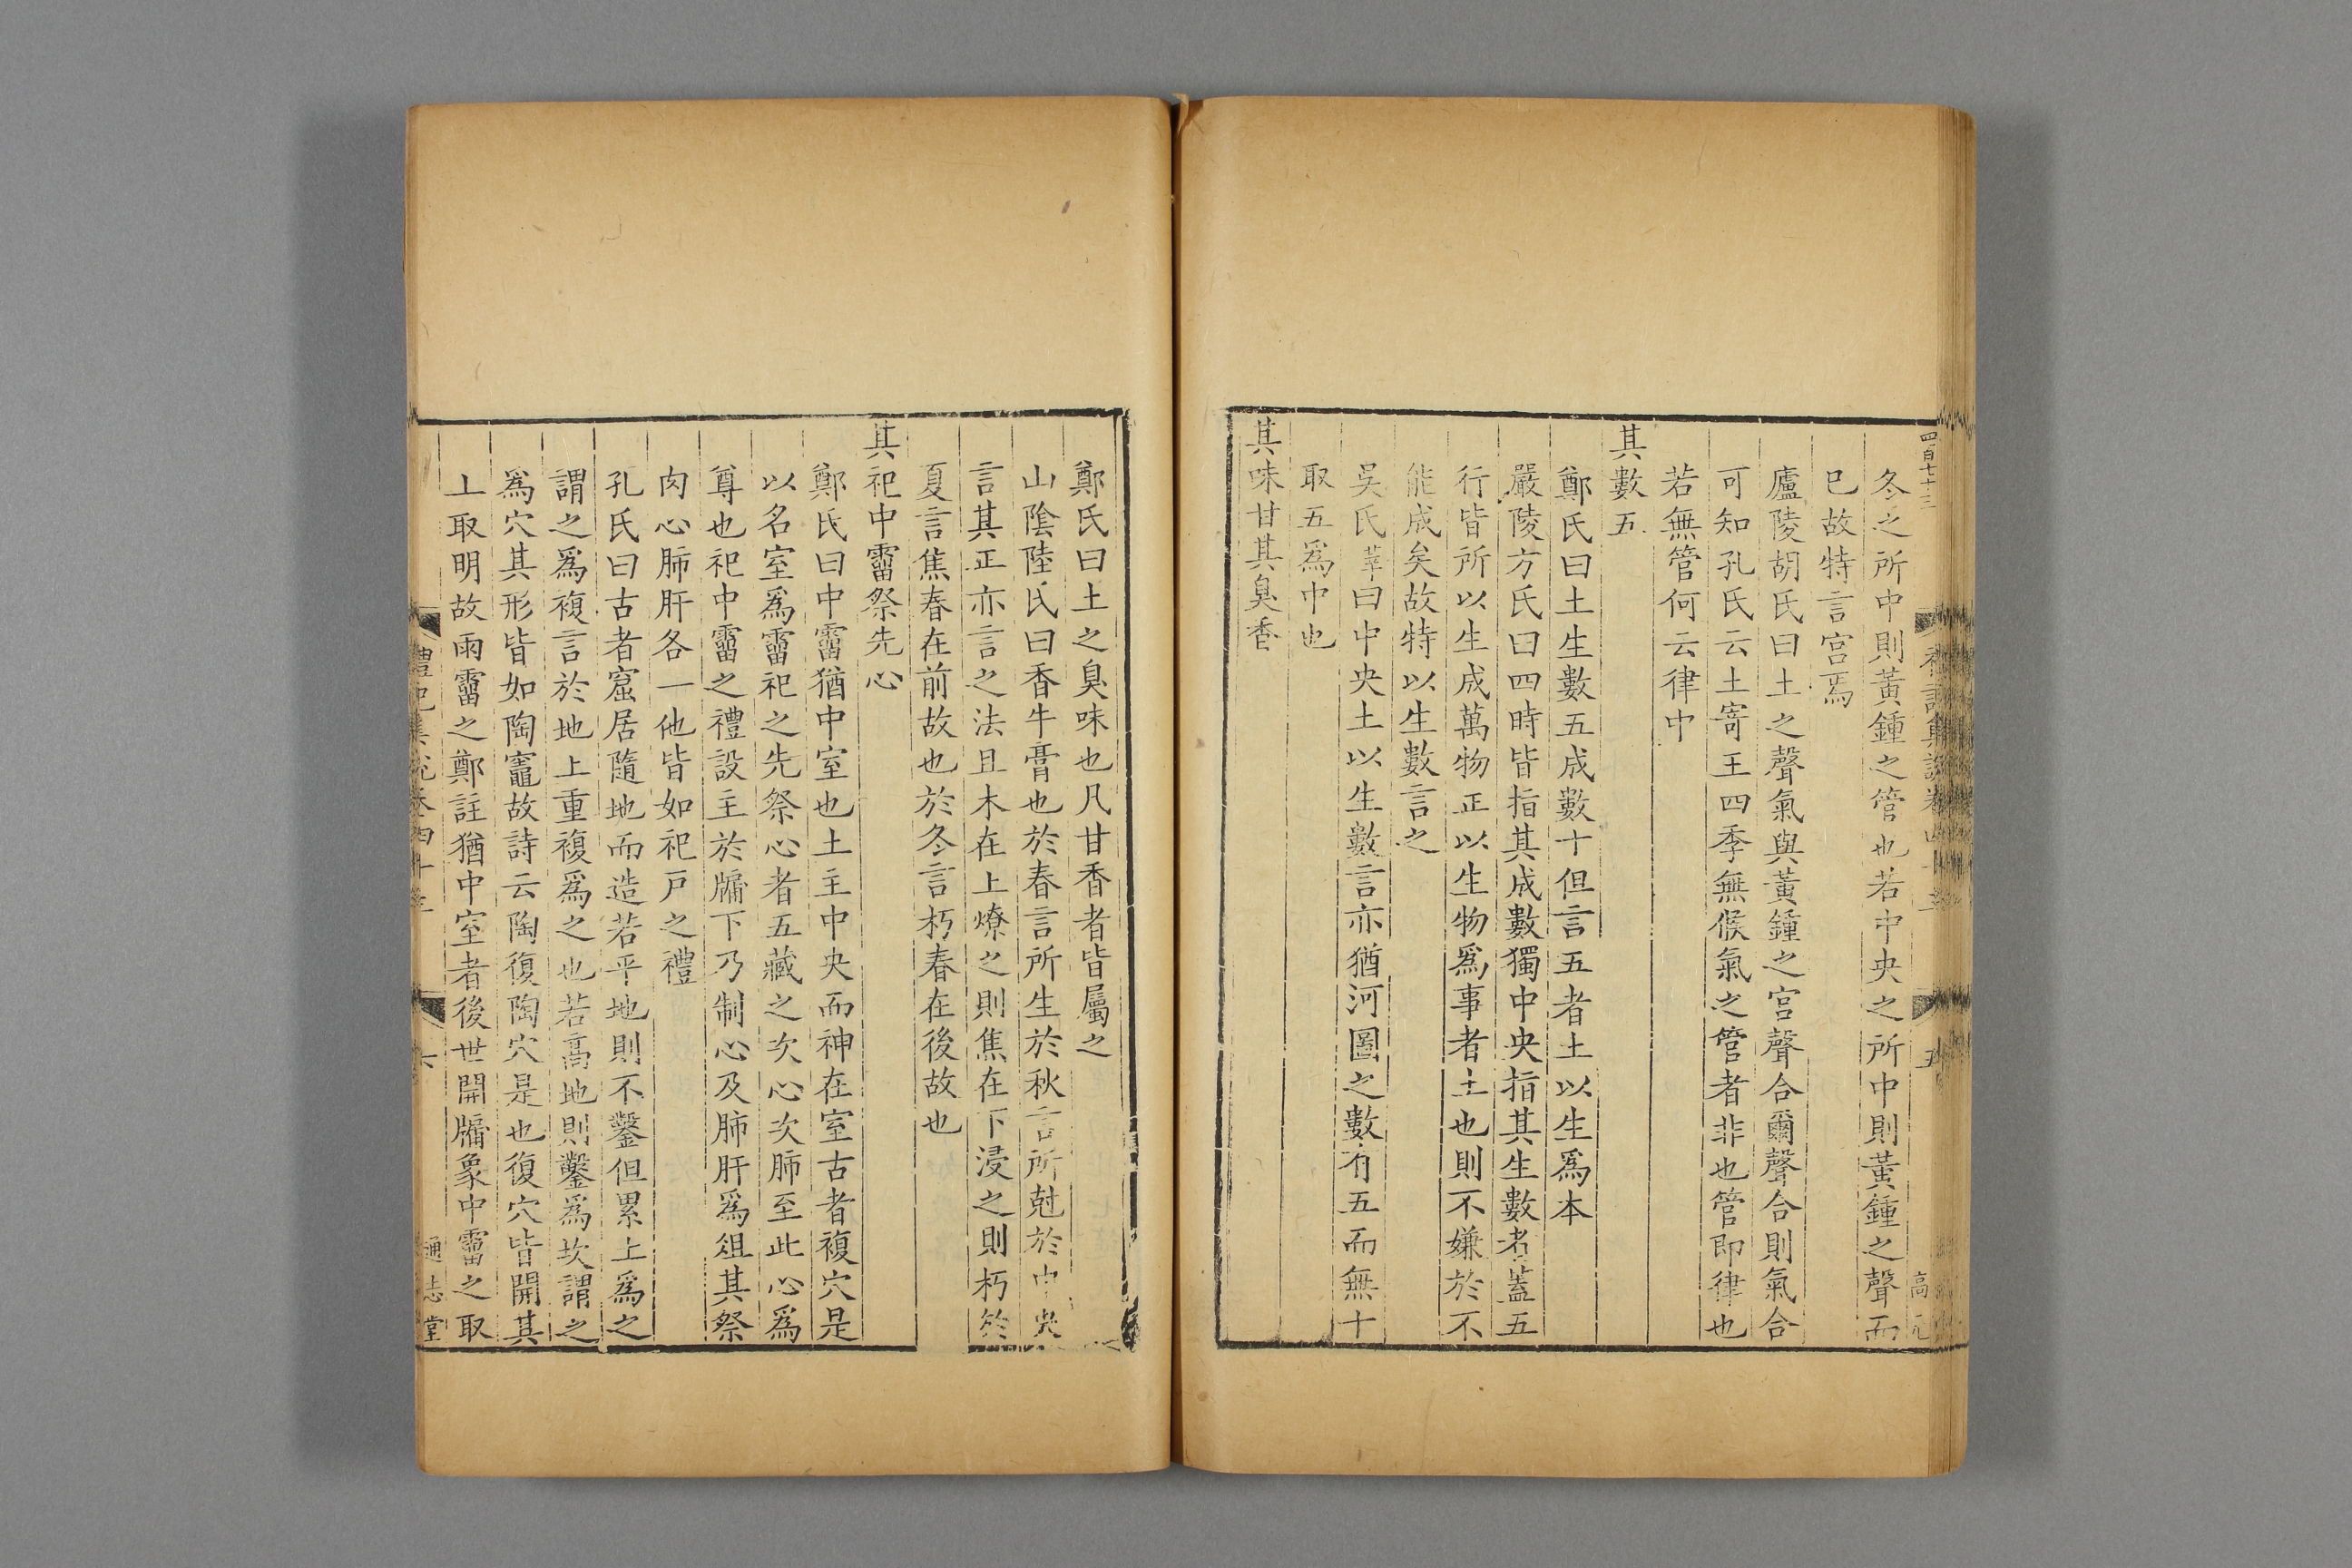 四百七十三
冬之所中則黃鍾之管也若中央之所中則黃鍾之聲而
已故特言宫焉
廬陵胡氏曰土之聲氣與黃鍾之宫聲合爾聲合則氣合
可知孔氏云土寄王四季無候氣之管者非也管即律也
若無管何云律中
其數五
鄭氏曰土生數五成數十但言五者土以生爲本
嚴陵方氏曰四時皆指其成數獨中央指其生數者蓋五
行皆所以生成萬物正以生物爲事者土也則不嫌於不
能成矣故特以生數言之
吳氏莘曰中央土以生數言亦猶河圖之數有五而無十
取五爲中也
其味甘其臭香
五
高元
鄭氏曰土之臭味也凡甘香者皆屬之
山陰陸氏曰香牛膏也於春言所生於秋言所尅於中央
言其正亦言之法且木在上燎之則焦在下浸之則朽於
夏言焦春在前故也於冬言朽春在後故也
其祀中霤祭先心
鄭氏曰中霤猶中室也土主中央而神在室古者複穴是
以名室爲霤祀之先祭心者五藏之次心次肺至此心爲
尊也祀中霤之禮設主於牖下乃制心及肺肝爲俎其祭
肉心肺肝各一他皆如祀戸之禮
孔氏曰古者窟居隨地而造若平地則不鑿但累土爲之
謂之爲複言於地上重複爲之也若高地則鑿爲坎謂之
爲穴其形皆如陶竈故詩云陶復陶穴是也復穴皆開其
上取明故雨霤之鄭註猶中室者後世開牖象中霤之取
禮記集說卷四十
六
通志堂